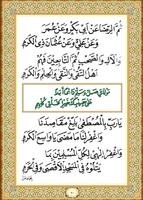 ثُمَّ الرِّضَا عَنْ أَبِي بَكْرٍ وَعَنْ عُمَرَ
وَعَنْ عَلِيٍّ وَعَنْ عُثْمَانَ ذِي الْكَرَمِ
وَالْآلِ وَالصَّحْبِ ثُمَّ التَّابِعِينَ فَهُمْ
أَهْلُ التُّقَى وَالنَّقَى وَالْحِلْمِ وَالْكَرَمِ
مَوْلَايَ صَلِّ وَسَلِّمْ دَائِمًا أَبَدًا
عَلَى حَبِيبِكَ خَيْرِ الْخَلْقِ كُلِّهِمِ
يَا رَبِّ بِالْمُصْطَفَى بَلِّغْ مَقَاصِدَنَا
وَاغْفِرْ لَنَا مَا مَضَى يَا وَاسِعَ الْكَرَمِ
وَاغْفِرْ إِلَهِي لِكُلِّ الْمُسْلِمِينَ بِمَا
يَتْلُوهُ فِي الْمَسْجِدِ الْأَقْصَى وَفِي الْحَرَمِ